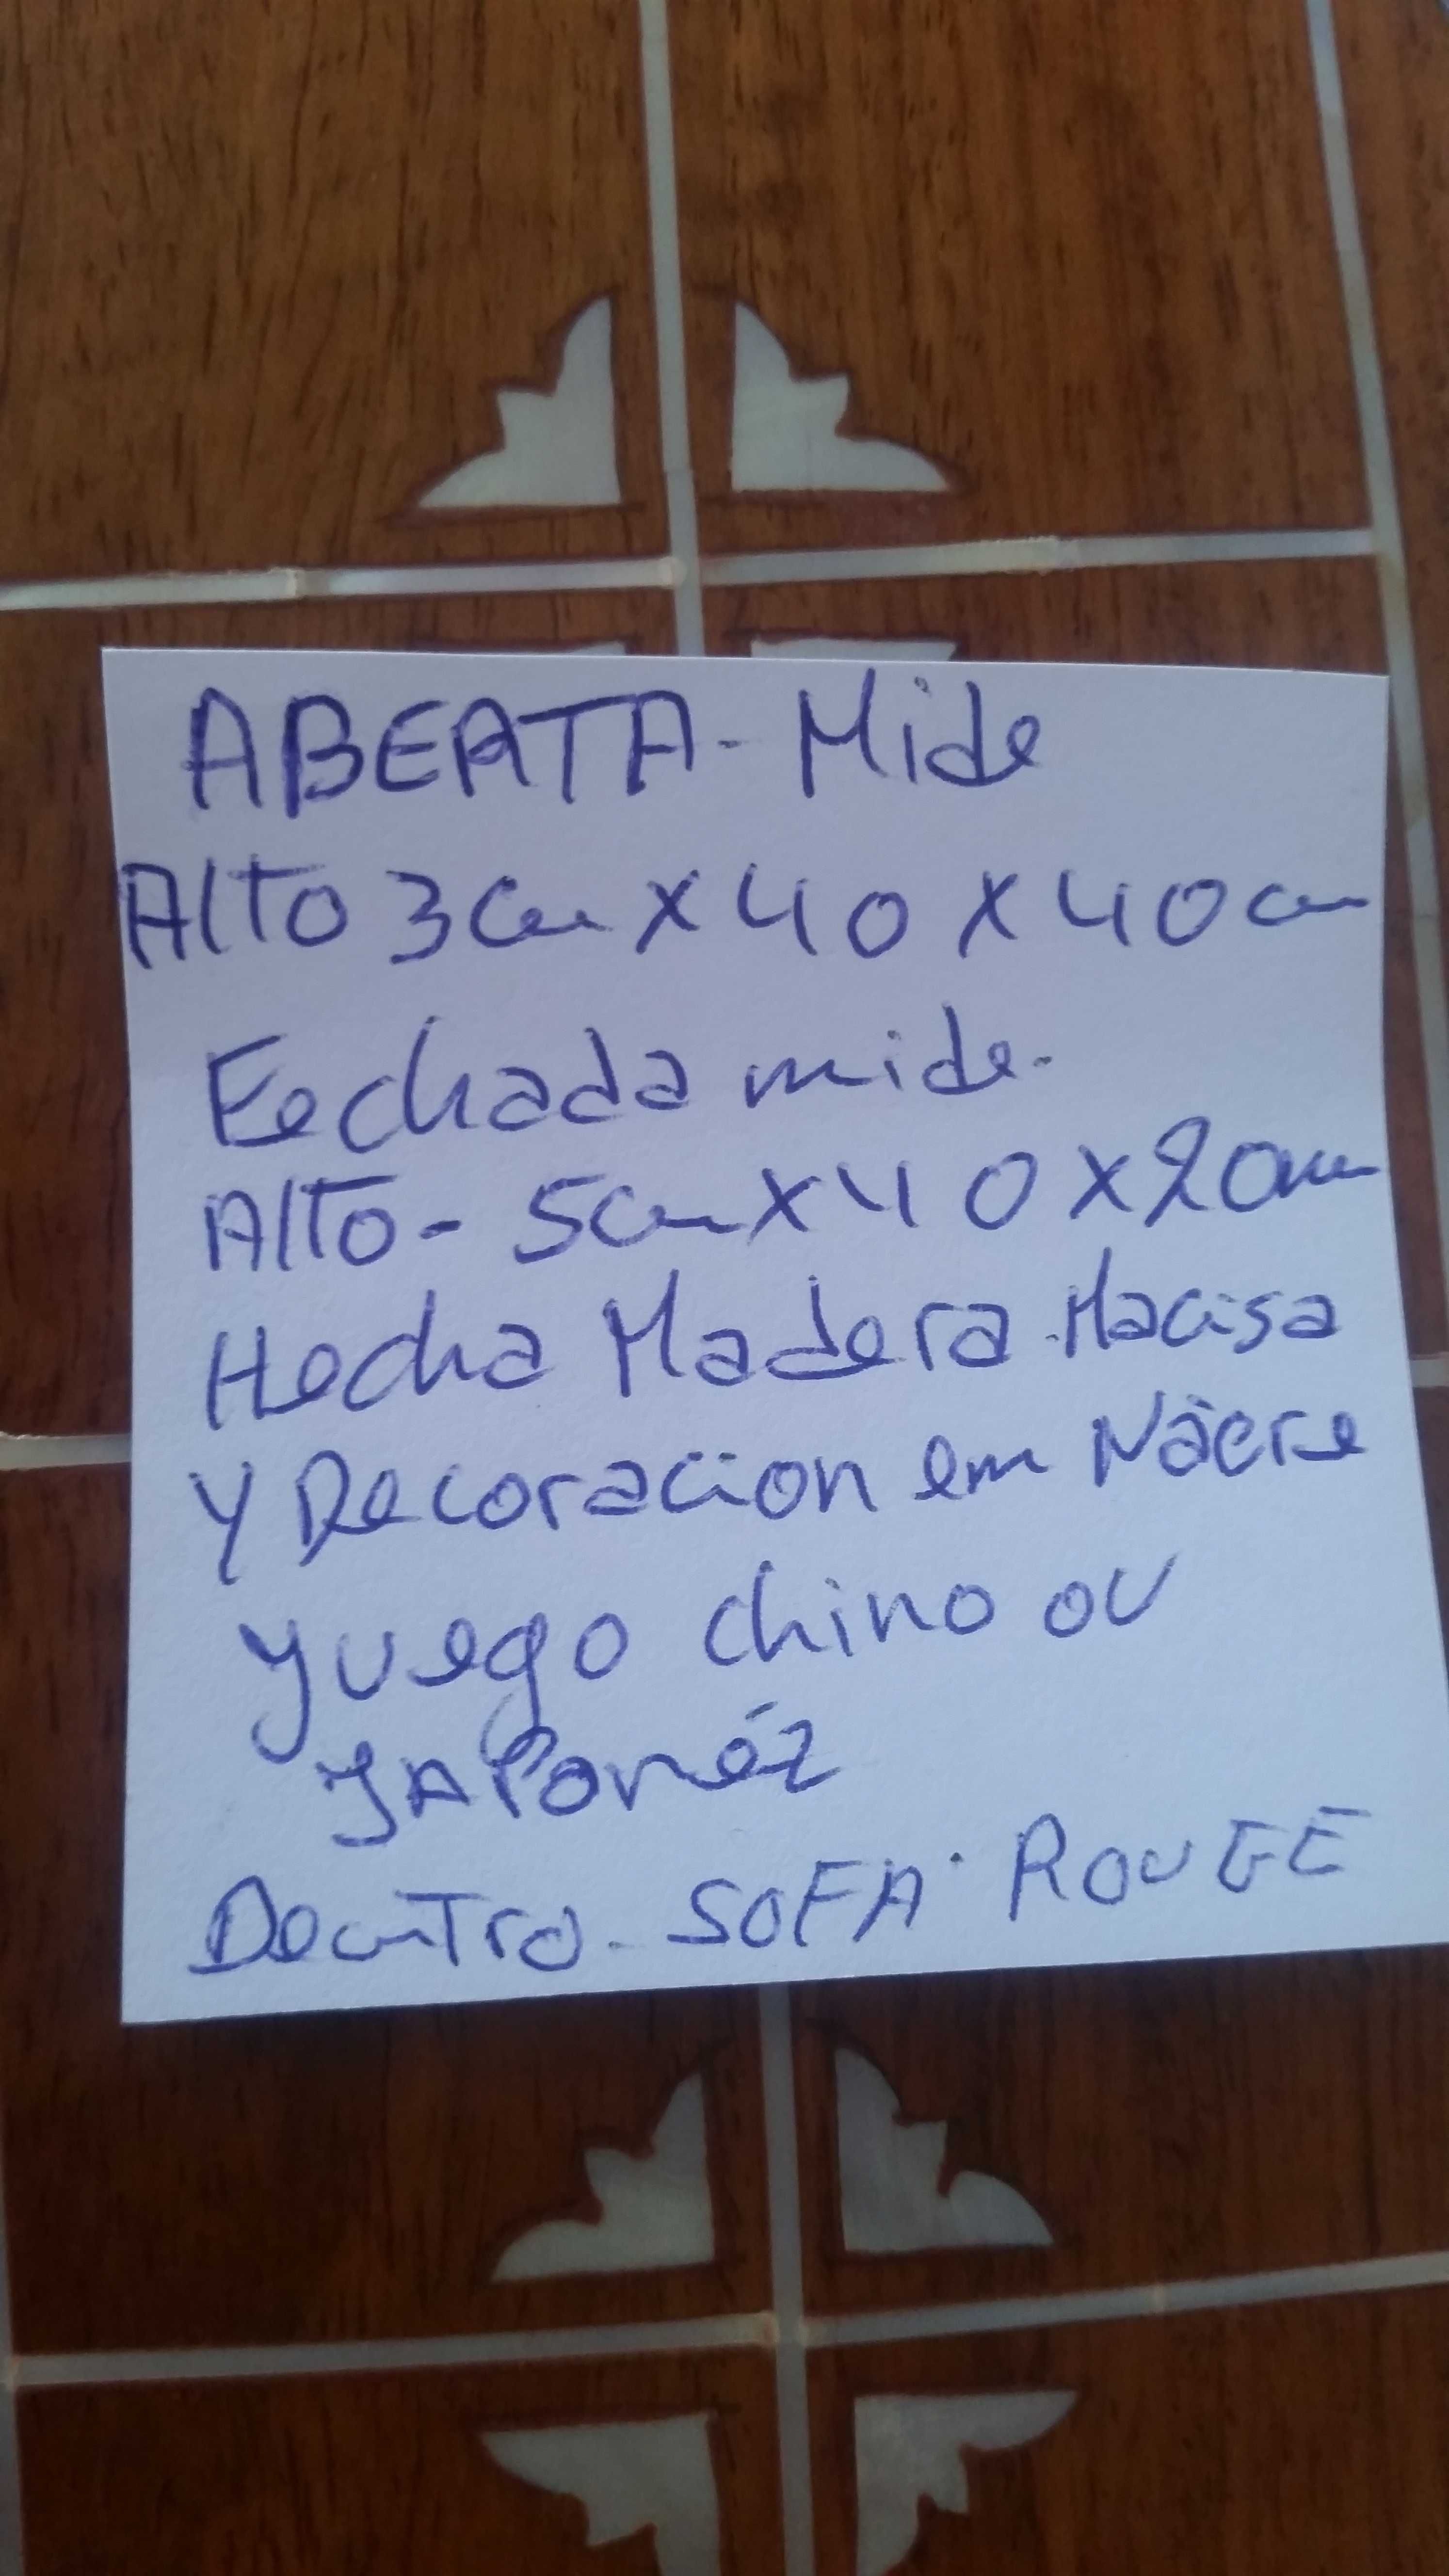 ABERTA - Mide
Alto 3cm x 40 x 40cm
Fechada mide.
Alto - 5cm x 40 x 20cm
Hecha Madera Macisa
y Decoracion em Nàcre
yuego chino ou
JAPonéz
DenTro - SOFA ROUGE